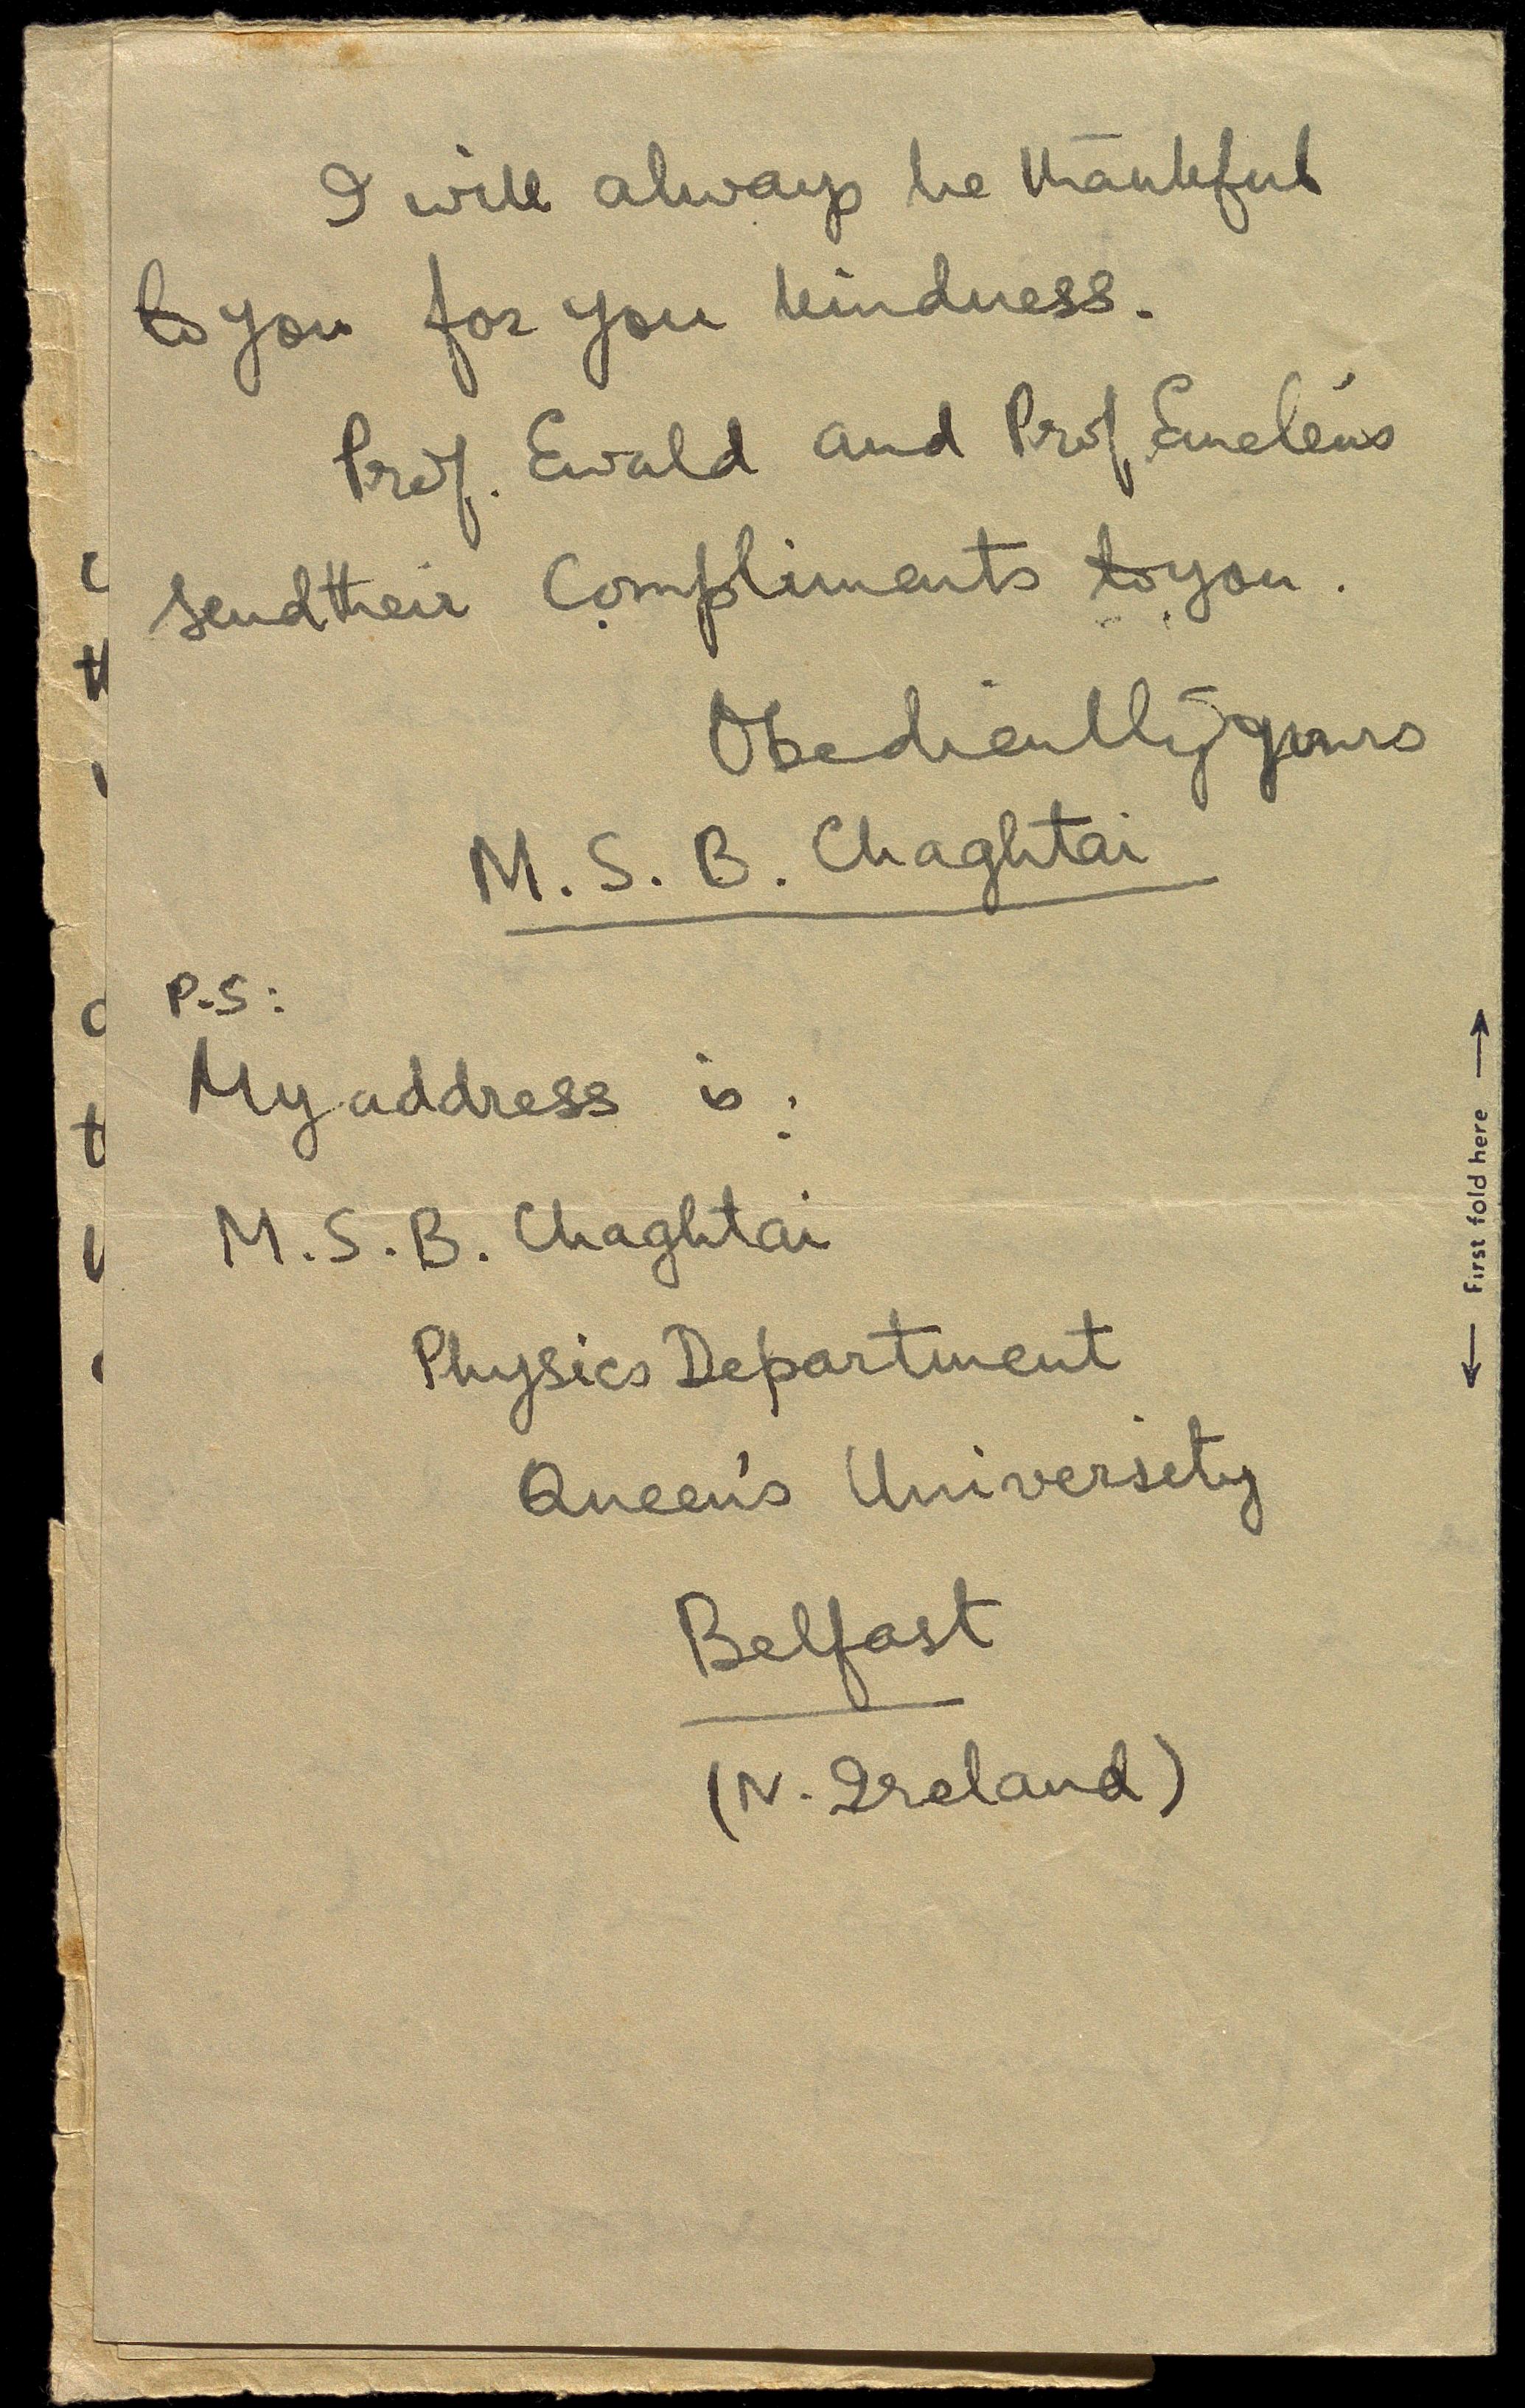 I will always be thankful
to you for you kindness.
Prof. Ewald and Prof. Emeléus
send their Compliments to you.
Obediently yours
M. S. B. Chaghtai
P.S:
My address is :
M. S. B. Chaghtai
Physics Department
Queen's University
Belfast
(N. Ireland)
First fold here